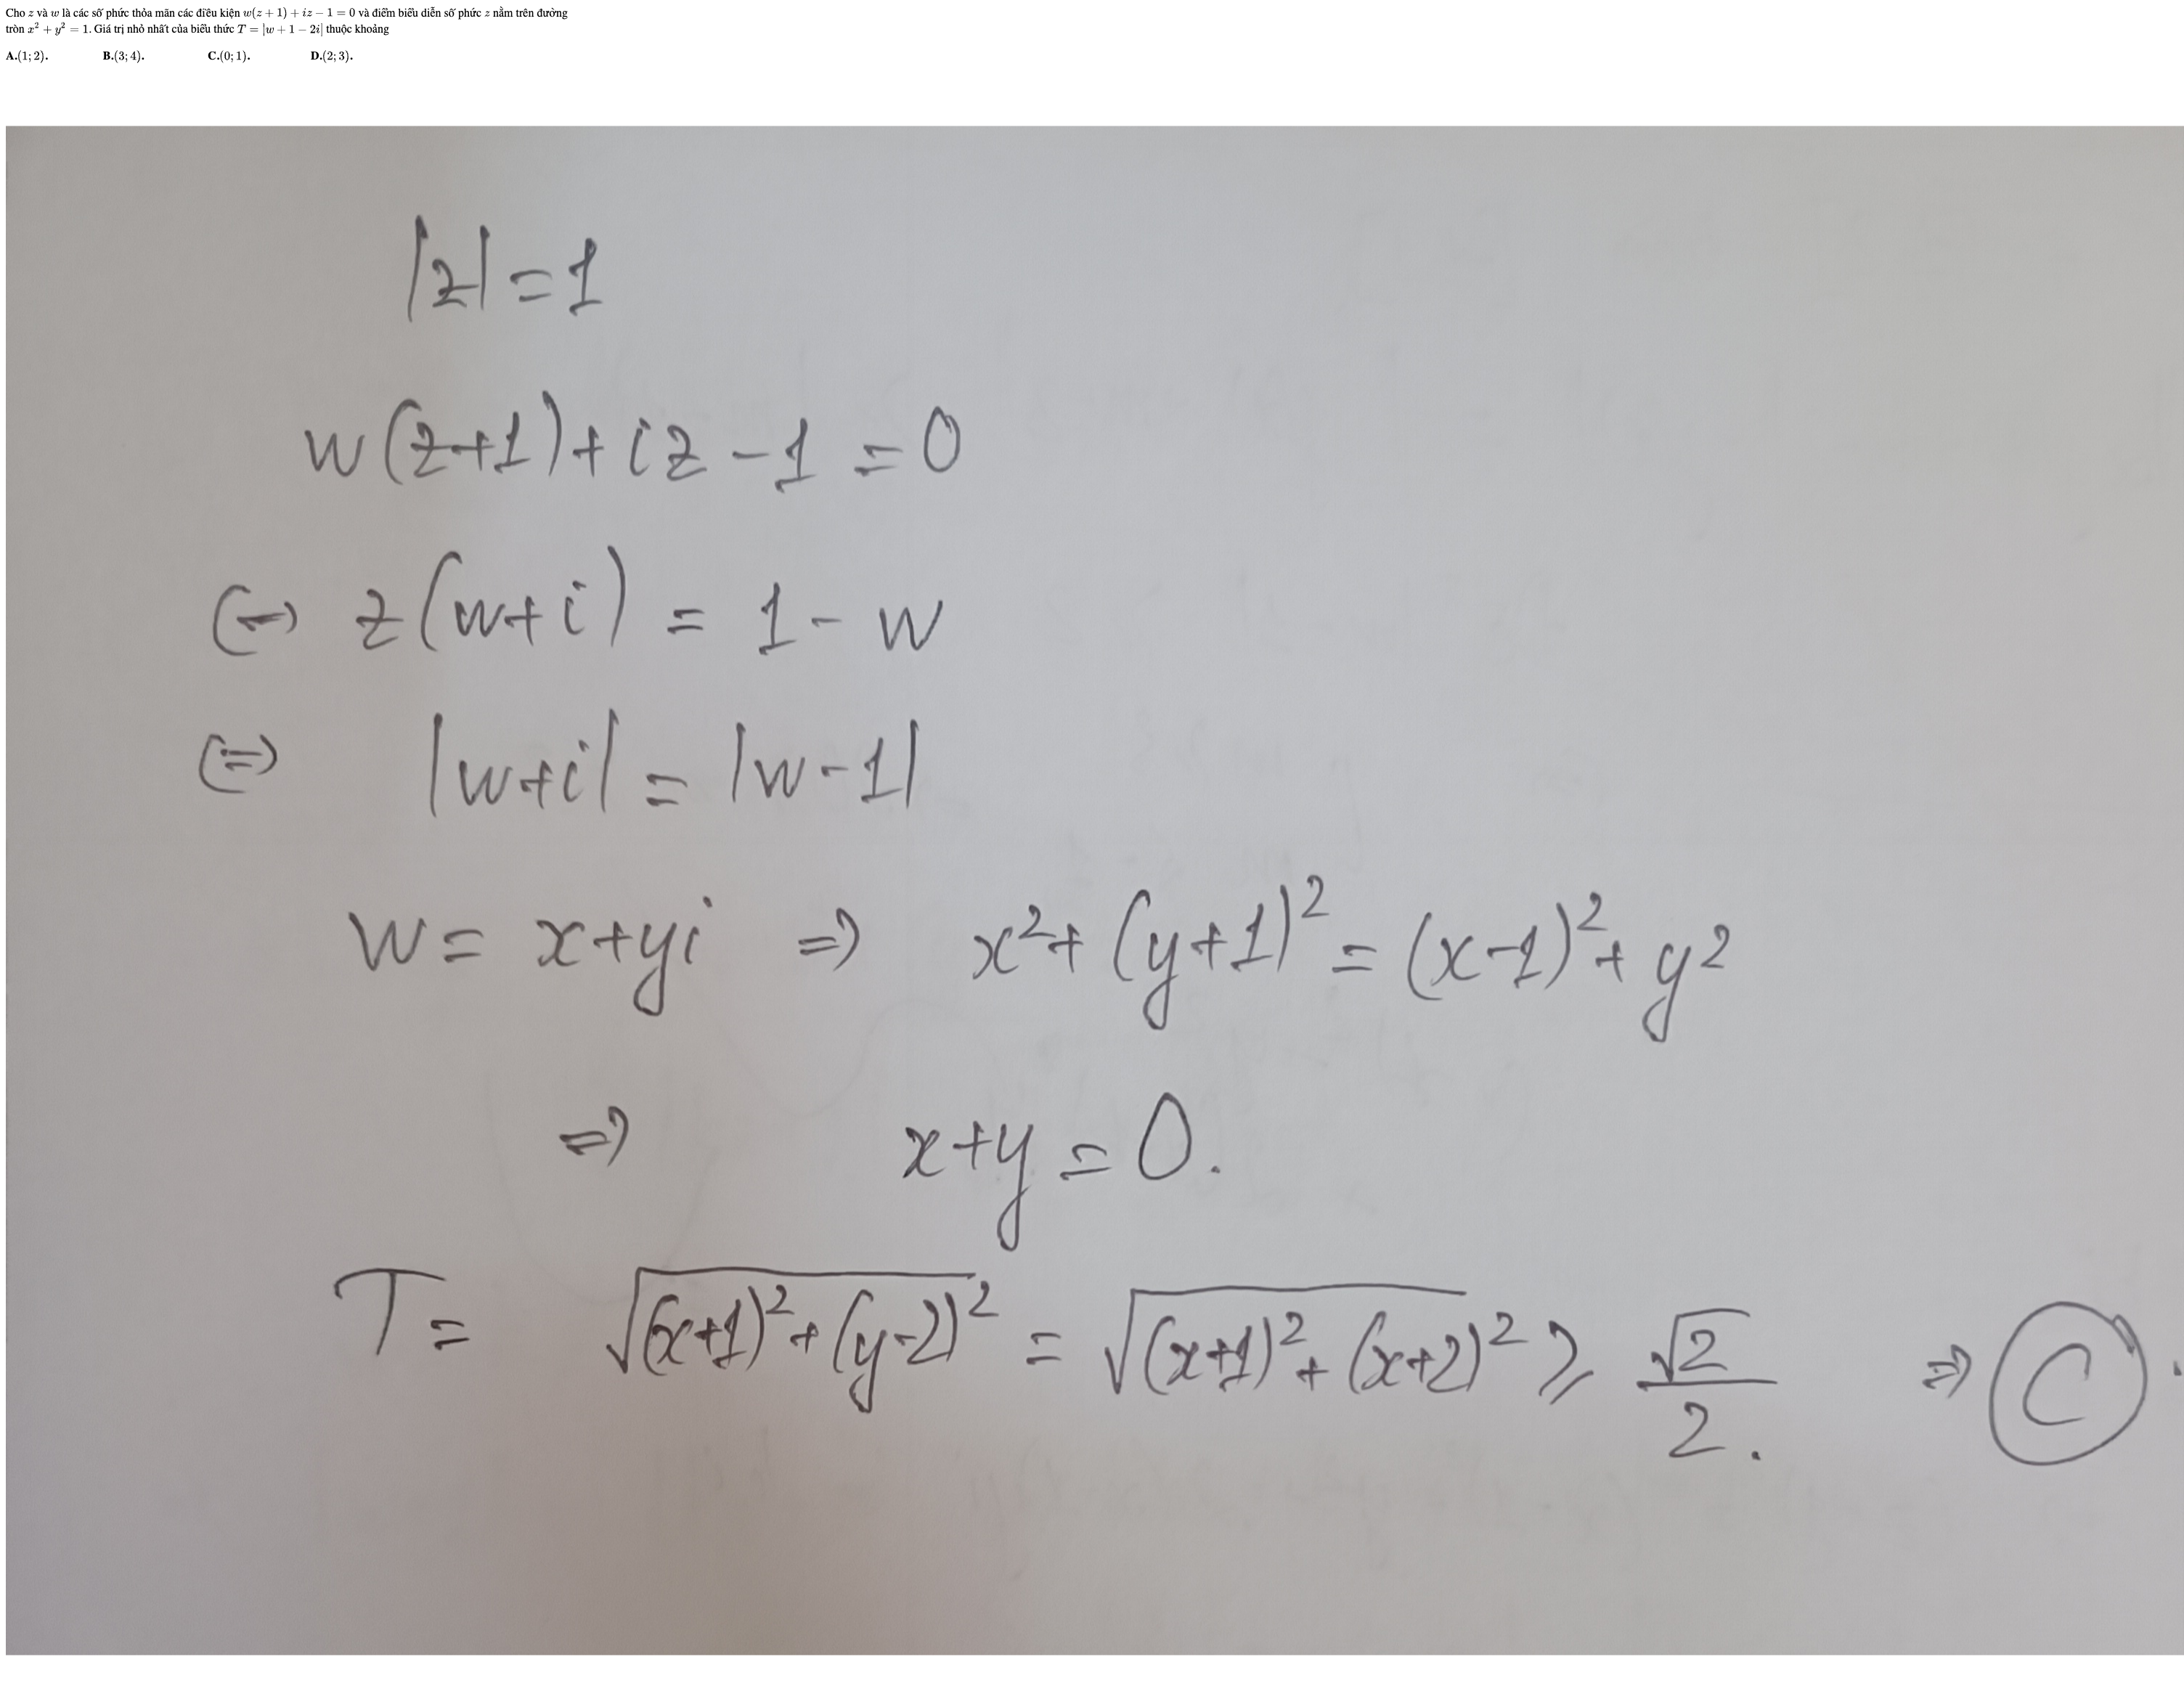 Cho z và w là các số phức thỏa mãn các điều kiện w(z + 1) + iz − 1 = 0 và điểm biểu diễn số phức z nằm trên đường
tròn x² + y² = 1. Giá trị nhỏ nhất của biểu thức T = |w + 1 − 2i| thuộc khoảng
A.(1; 2). B.(3; 4). C.(0; 1). D.(2; 3).
|z| = 1
w(z+1) + iz − 1 = 0
(↔) z(w+i) = 1 − w
(=) |w+i| = |w−1|
w = x+yi ⇒ x² + (y+1)² = (x−1)² + y²
⇒ x+y = 0.
T = √(x+1)² + (y−2)² = √(x+1)² + (x+2)² ≥ √2/2. ⇒ C.